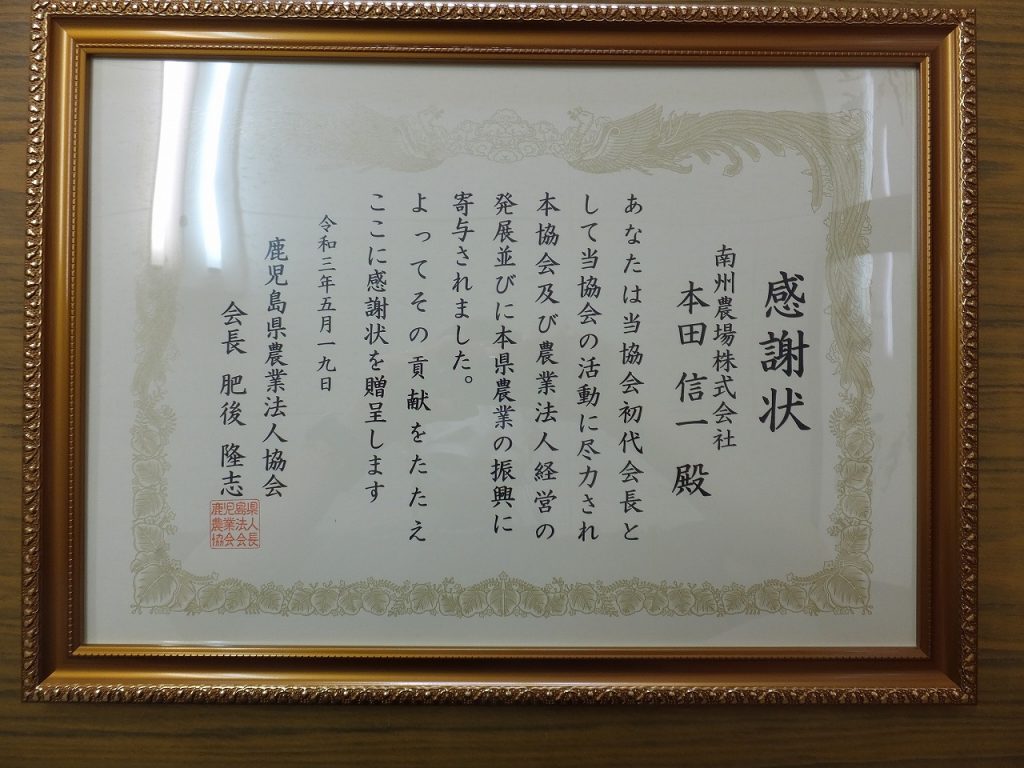 感謝状
南州農場株式会社
本田信一殿
あなたは当協会初代会長と
して当協会の活動に尽力され
本協会及び農業法人経営の
発展並びに本県農業の振興に
寄与されました。
よってその貢献をたたえ
ここに感謝状を贈呈します
令和三年五月一九日
鹿児島県農業法人協会
会長 肥後 隆志
鹿児島県
農業法人
協会会長